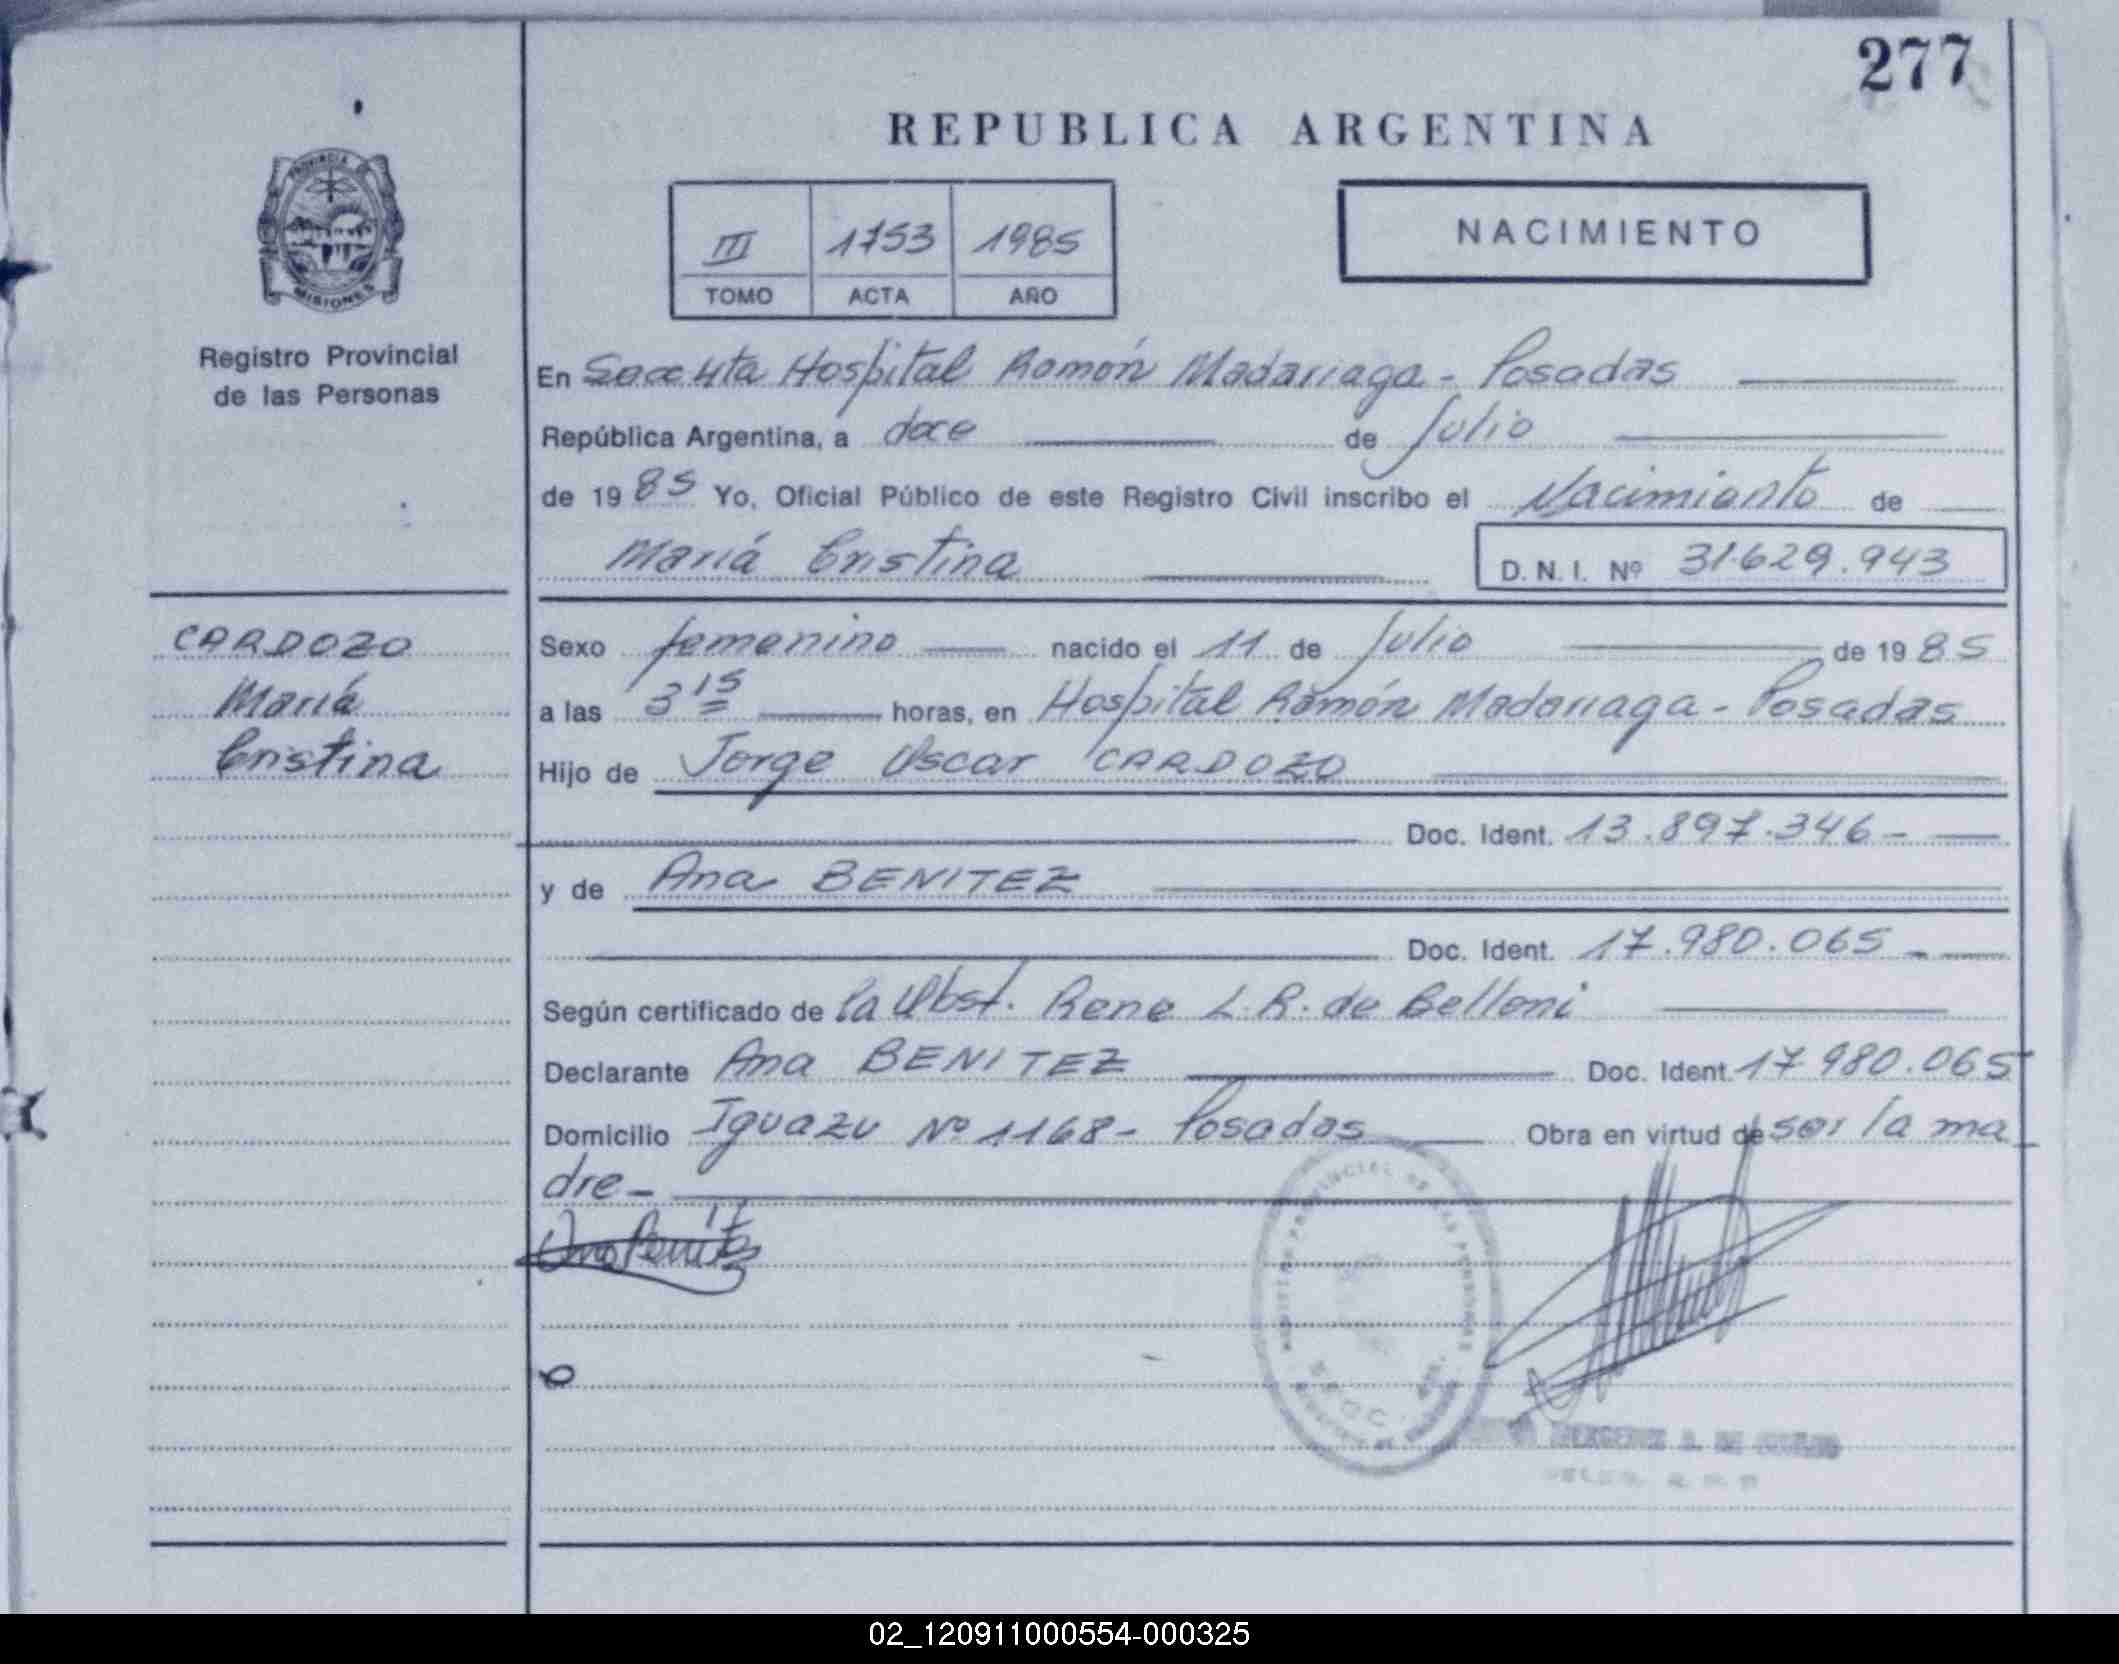 277
REPUBLICA ARGENTINA
PROVINCIA DE
MISIONES
Registro Provincial
de las Personas
III 1753 1985
TOMO ACTA AÑO
NACIMIENTO
En Hospital Ramón Madariaga - Posadas
República Argentina, a doce de Julio
de 1985 Yo, Oficial Público de este Registro Civil inscribo el Nacimiento de
María Cristina D.N.I. Nº 31.629.943
CARDOZO
María
Cristina
Sexo femenino nacido el 11 de Julio de 1985
a las 3 15 horas, en Hospital Ramón Madariaga - Posadas
Hijo de Jorge Oscar CARDOZO
Doc. Ident. 13.897.346 -
y de Ana BENITEZ
Doc. Ident. 17.980.065 -
Según certificado de la Obst. Rene L.R. de Belloni
Declarante Ana BENITEZ Doc. Ident. 17 980.065
Domicilio Iguazu Nº 1168 - Posadas Obra en virtud de ser la ma
dre -
Ana Benitez
02_120911000554-000325